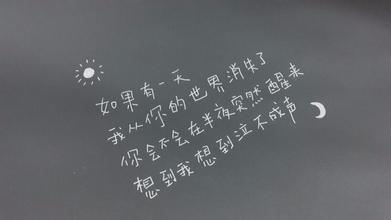 如果有一天
我从你的世界消失了
你会不会在半夜突然醒来
想到我想到泣不成声